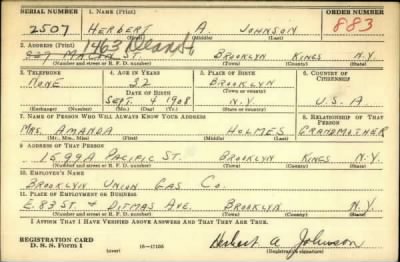 SERIAL NUMBER 1. NAME (Print) ORDER NUMBER
2507 HERBERT A JOHNSON 883
(First) (Middle) (Last)
2. ADDRESS (Print) 1463 Dean St
ST. BROOKLYN KINGS N.Y.
(Number and street or R. F. D. number) (Town) (County) (State)
3. TELEPHONE 4. AGE IN YEARS 5. PLACE OF BIRTH 6. COUNTRY OF CITIZENSHIP
NONE 32 BROOKLYN
DATE OF BIRTH (Town or county)
SEPT. 4 1908 N.Y. U.S.A.
(Exchange) (Number) (Mo.) (Day) (Yr.) (State or country)
7. NAME OF PERSON WHO WILL ALWAYS KNOW YOUR ADDRESS 8. RELATIONSHIP OF THAT PERSON
MRS. AMANDA HOLMES GRANDMOTHER
(Mr., Mrs., Miss) (First) (Middle) (Last)
9. ADDRESS OF THAT PERSON
1599A PACIFIC ST. BROOKLYN KINGS N.Y.
(Number and street or R. F. D. number) (Town) (County) (State)
10. EMPLOYER'S NAME
BROOKLYN UNION GAS CO.
11. PLACE OF EMPLOYMENT OR BUSINESS
E. 83 ST & DITMAS AVE. BROOKLYN N.Y.
(Number and street or R. F. D. number) (Town) (County) (State)
I AFFIRM THAT I HAVE VERIFIED ABOVE ANSWERS AND THAT THEY ARE TRUE.
REGISTRATION CARD
D. S. S. Form 1 (over) 16—17105 Herbert A Johnson
(Registrant's signature)